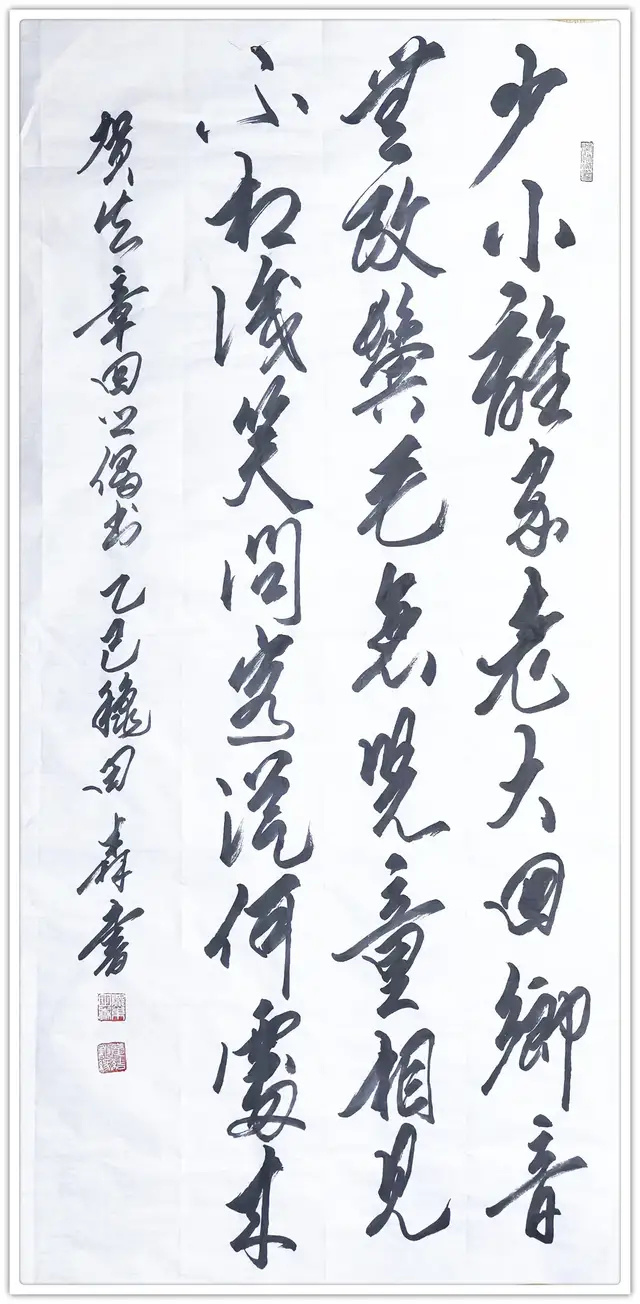 少小離家老大回鄉音
無改鬢毛衰兒童相見
不相識笑問客從何處來
賀知章回鄉偶书 乙巳穐月 森書